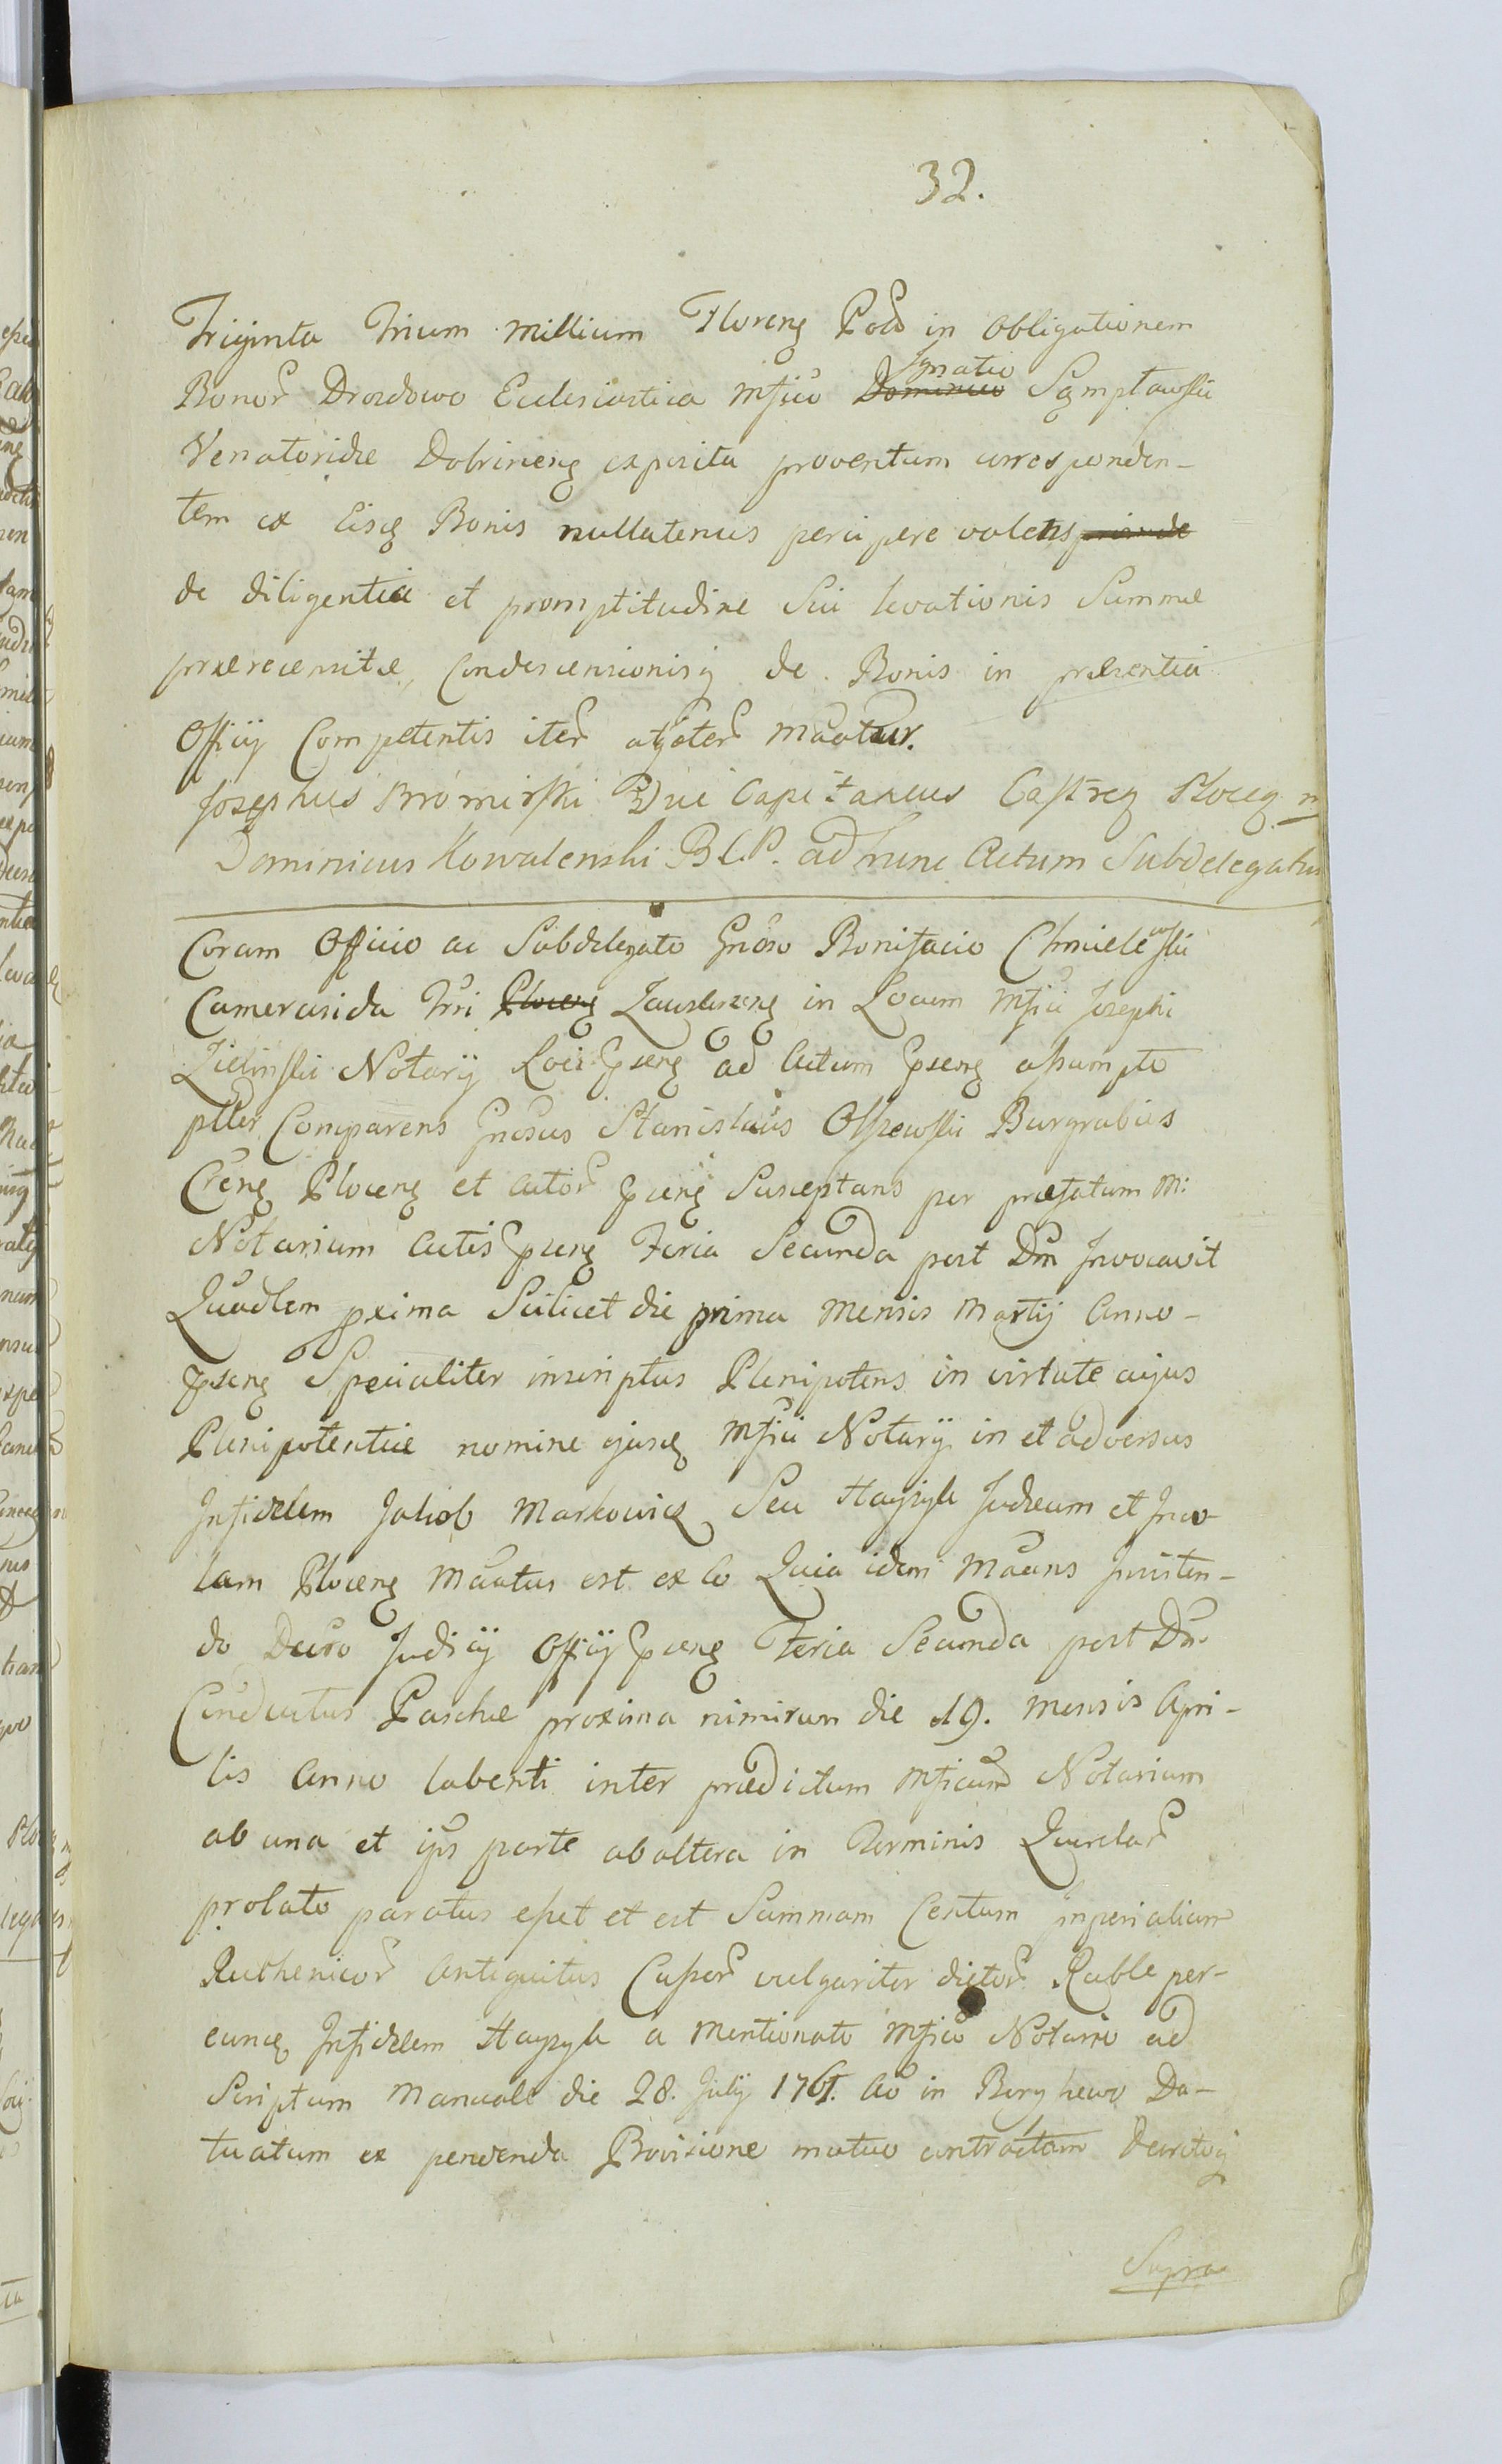 32.
Triginta Trium Millium Floreng Pol in Obligationem
Ignatio
Bonor Drozdowo Ecclesiastica Mfico Dominico Szmptawski
Venatoridæ Dobrineng exposita proventum corresponden-
tem ex Eisq Bonis nullatenus percipere volens
de diligentia et promptitudine Sui levationis Summæ
prærecensitæ, Condescensionisq de Bonis in præsentia
Officij Competentis iter atqeter Maatur.
Josephus Bromirski Capitaneus Castreg Plocēg
Dominicus Kowalewski B.C.P. ad hunc Actum Subdelegatus
Coram Officio ac Subdelegato Gnoso Bonifacio Chmielewski
Camerarida Tri Ploceng Zauskrzeng in Locum Mfici Josephi
Zielinski Notarij Loci pseng ad Actum pseng assumpto
plter Comparens Gnosus Stanislaus Olszewski Burgrabius
Creng Ploceng et actor pseng Susceptans per præfatum M:
Notarium Actis pseng Feria Secunda post Dm Invocavit
Quadlem pxima Scilicet die prima Mensis Martij Anno-
pseng Specialiter inscriptus Plenipotens in virtute cujus
Plenipotentiæ nomine ejusq Mfici Notarij in et adversus
Infidelem Jakob Markowicz Seu Hayzyk Judæum et Inco-
lam Ploceng Maatus est ex eo Quia idem Maans Insisten-
do Dcro Judicij Officij pseng Feria Secunda post Dn.
Conductus Paschæ proxima nimirum die 19. Mensis Apri-
lis Anno labenti inter prædictum Mficum Notarium
ab una et ips parte ab altera in Terminis Querelar
prolato paratus esset et est Summam Centum Imperialium
Ruthenicor Antiquitus Cusor vulgariter dictor Ruble per-
eunq Infidelem Hayzyk a Mentionato Mfico Notario ad
Scriptum Manuale die 28. Julij 1761. Ao in Berghewo Da-
tuatum ex penden​da Provisione mutuo contractam Decretoq
Supra